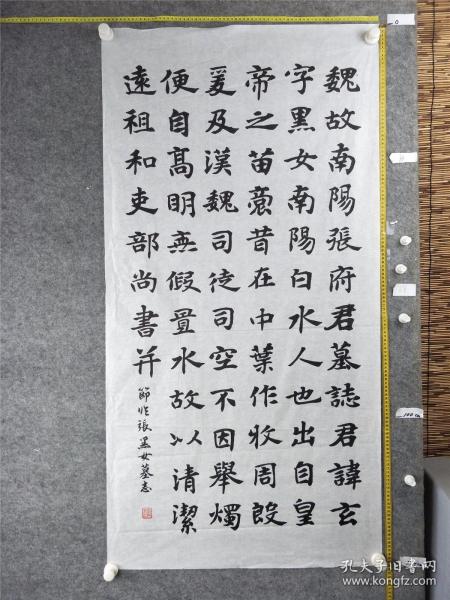 魏故南陽張府君墓誌君諱玄
字黑女南陽白水人也出自皇
帝之苗裔昔在中葉作牧周殷
爰及漢魏司徒司空不因舉燭
便自高明無假置水故以清潔
遠祖和吏部尚書并
節临張黑女墓志
0
100cm
孔夫子旧书网
www.kongfz.com